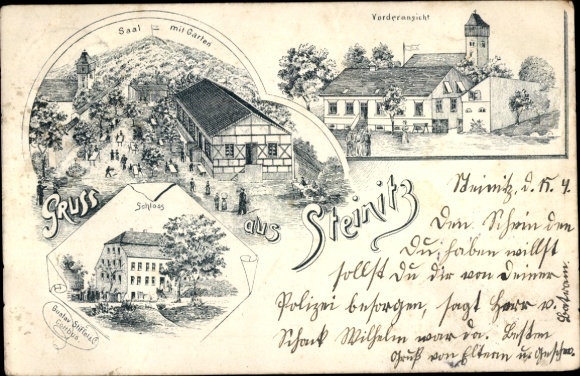 Saal mit Garten
Vorderansicht
Gruss aus Steinitz
Schloss
Gustav
Cottbus.
Steinitz, d. 15. 4.
Den Schein den
Du, haben willst
sollst Du dir von deiner
Polizei besorgen, sagt Herr v.
Schack Wilhelm war da. Besten
Gruß von Eltern u. Geschw.